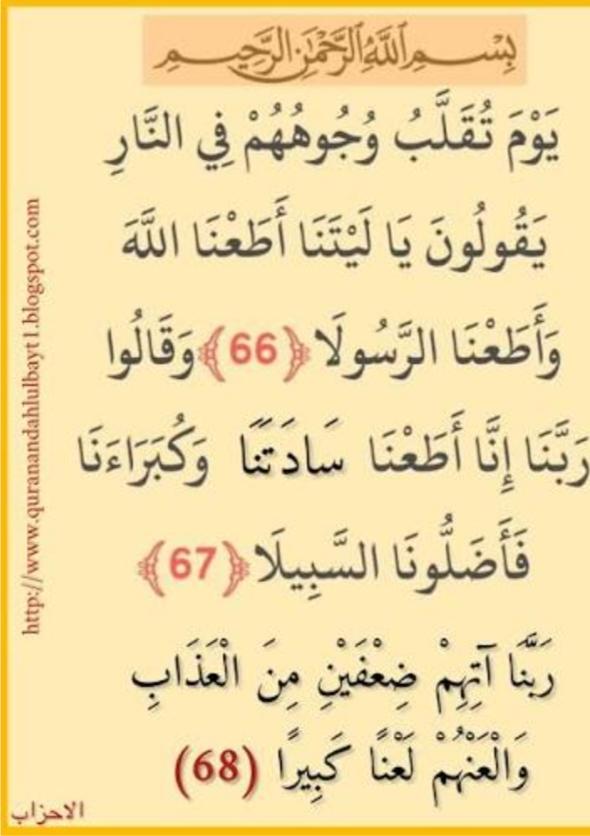 بِسْمِ اللَّهِ الرَّحْمَٰنِ الرَّحِيمِ
يَوْمَ تُقَلَّبُ وُجُوهُهُمْ فِي النَّارِ
يَقُولُونَ يَا لَيْتَنَا أَطَعْنَا اللَّهَ
وَأَطَعْنَا الرَّسُولَا ﴿66﴾ وَقَالُوا
رَبَّنَا إِنَّا أَطَعْنَا سَادَتَنَا وَكُبَرَاءَنَا
فَأَضَلُّونَا السَّبِيلَا ﴿67﴾
رَبَّنَا آتِهِمْ ضِعْفَيْنِ مِنَ الْعَذَابِ
وَالْعَنْهُمْ لَعْنًا كَبِيرًا (68)
الاحزاب
http://www.quranandahlulbayt1.blogspot.com